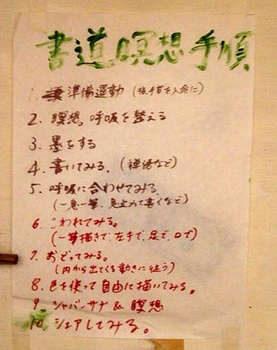 書道瞑想手順
1. 準備運動 (強手首を入念に)
2. 瞑想、呼吸を整える
3. 墨をする
4. 書いてみる。(禅語など)
5. 呼吸に合わせてみる。
(一息一筆、息止めて書くなど)
6. こわれてみる。
(一筆描きで、左手で、足で、口で)
7. おどってみる。
(内から出てくる動きに従う)
8. 色を使って自由に描いてみる。
9. シャバーサナ & 瞑想
10. シェアしてみる。